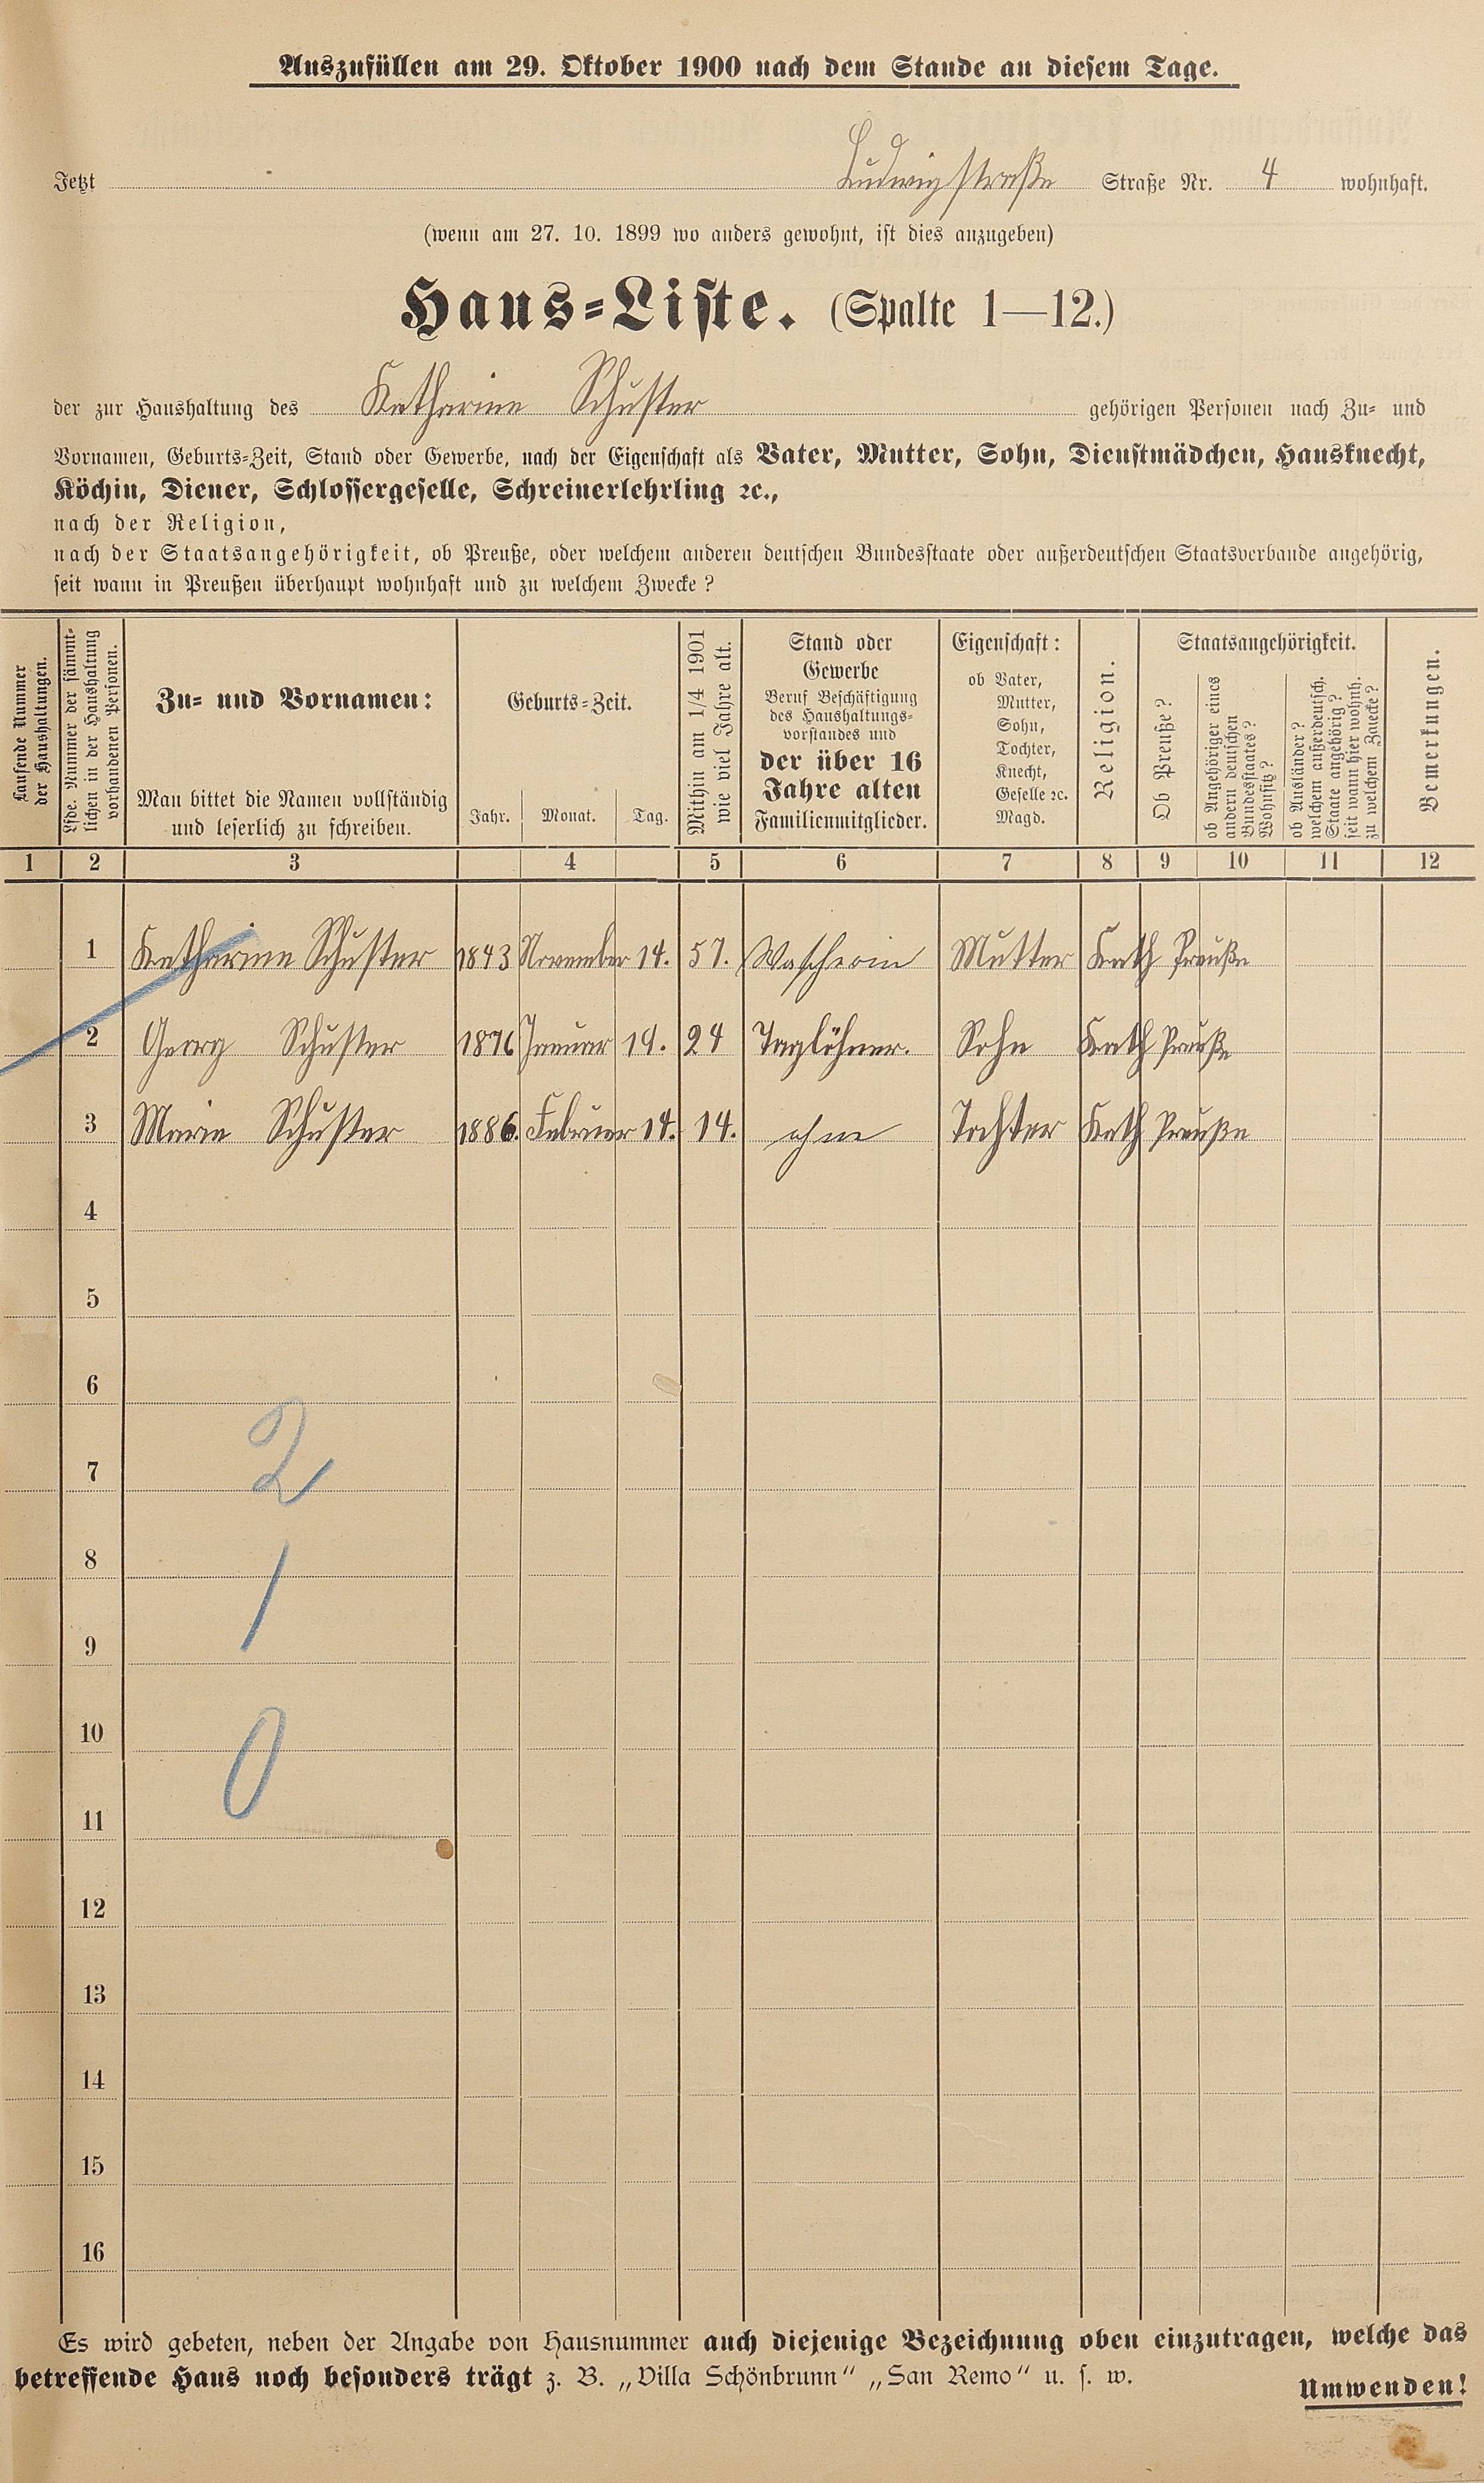 Auszufüllen am 29. Oktober 1900 nach dem Stande an diesem Tage.
Jetzt Ludwigstraße Straße Nr. 4 wohnhaft.
(wenn am 27. 10. 1899 wo anders gewohnt, ist dies anzugeben)
Haus-Liste. (Spalte 1—12.)
der zur Haushaltung des Katharine Schuster gehörigen Personen nach Zu- und
Vornamen, Geburts-Zeit, Stand oder Gewerbe, nach der Eigenschaft als Vater, Mutter, Sohn, Dienstmädchen, Hausknecht,
Köchin, Diener, Schlossergeselle, Schreinerlehrling ꝛc.,
nach der Religion,
nach der Staatsangehörigkeit, ob Preuße, oder welchem anderen deutschen Bundesstaate oder außerdeutschen Staatsverbande angehörig,
seit wann in Preußen überhaupt wohnhaft und zu welchem Zwecke?
Laufende Nummer
der Haushaltungen.
Lfde. Nummer der sämmt-
lichen in der Haushaltung
vorhandenen Personen.
Zu- und Vornamen:
Man bittet die Namen vollständig
und leserlich zu schreiben.
Geburts-Zeit.
Jahr. Monat. Tag.
Mithin am 1/4 1901
wie viel Jahre alt.
Stand oder
Gewerbe
Beruf Beschäftigung
des Haushaltungs-
vorstandes und
der über 16
Jahre alten
Familienmitglieder.
Eigenschaft:
ob Vater,
Mutter,
Sohn,
Tochter,
Knecht,
Geselle ꝛc.
Magd.
Religion.
Staatsangehörigkeit.
Ob Preuße?
ob Angehöriger eines
andern deutschen
Bundesstaates?
Wohnsitz?
ob Ausländer?
welchem außerdeutsch.
Staate angehörig?
seit wann hier wohnh.
zu welchem Zwecke?
Bemerkungen.
1 2 3 4 5 6 7 8 9 10 11 12
1 Katharine Schuster 1843 November 14. 57. Wascherin Mutter Kath Preuße
2 Georg Schuster 1876 Januar 19. 24 Taglöhner. Sohn Kath Preuße
3 Marie Schuster 1886. Februar 14. 14. ohne Tochter Kath Preuße
4
5
6
2
7
8
1
9
10
0
11
12
13
14
15
16
Es wird gebeten, neben der Angabe von Hausnummer auch diejenige Bezeichnung oben einzutragen, welche das
betreffende Haus noch besonders trägt z. B. „Villa Schönbrunn“ „San Remo“ u. s. w.
Umwenden!